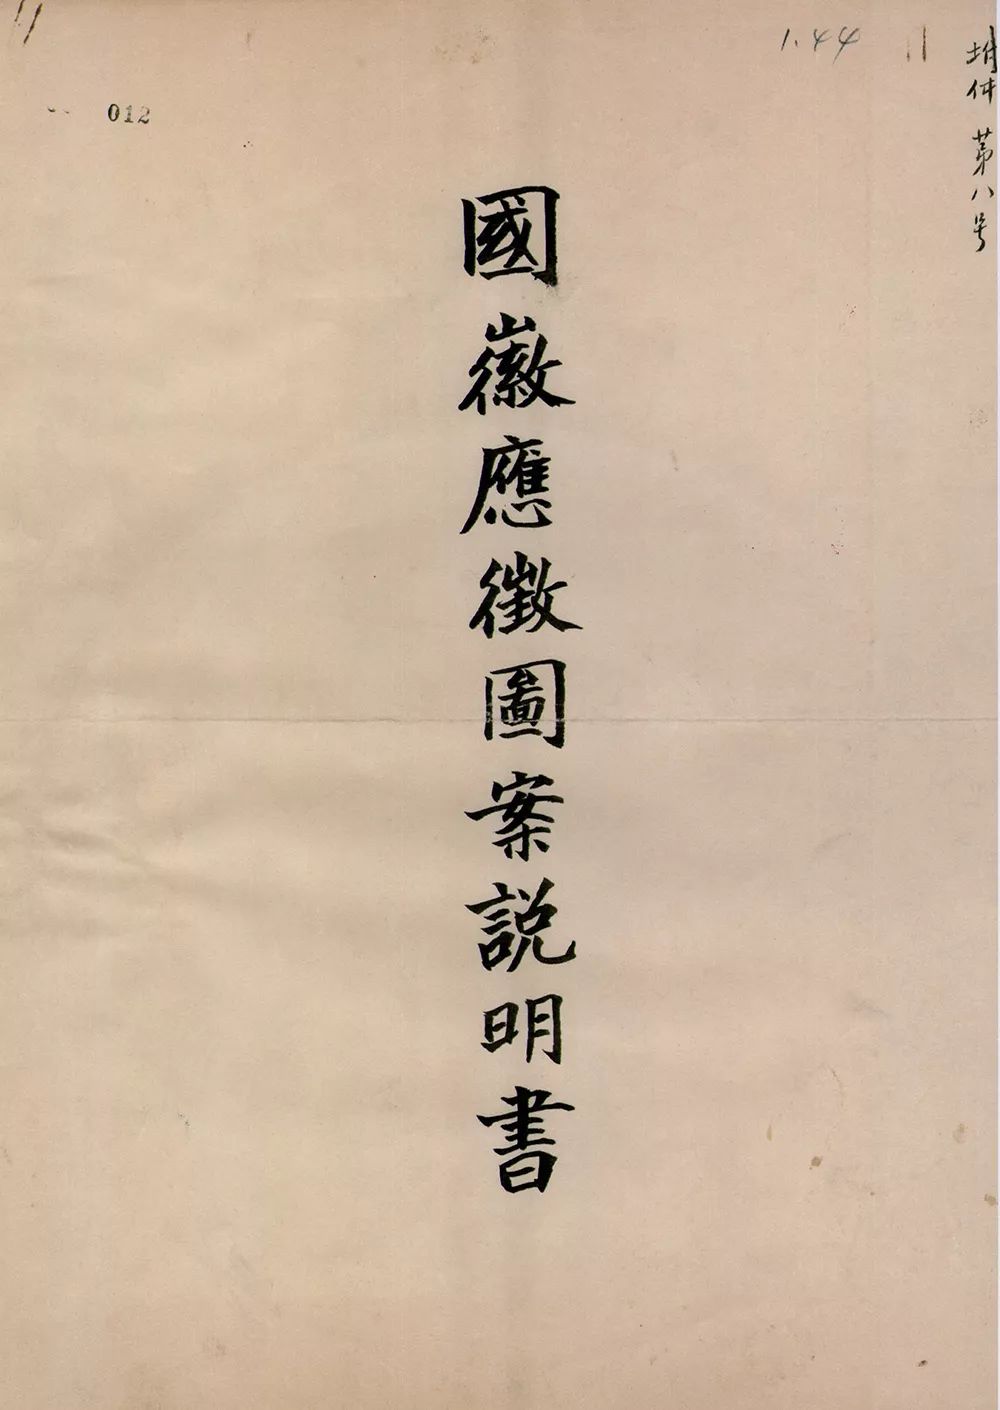 1.44
附件 第八号
012
國徽應徵圖案説明書